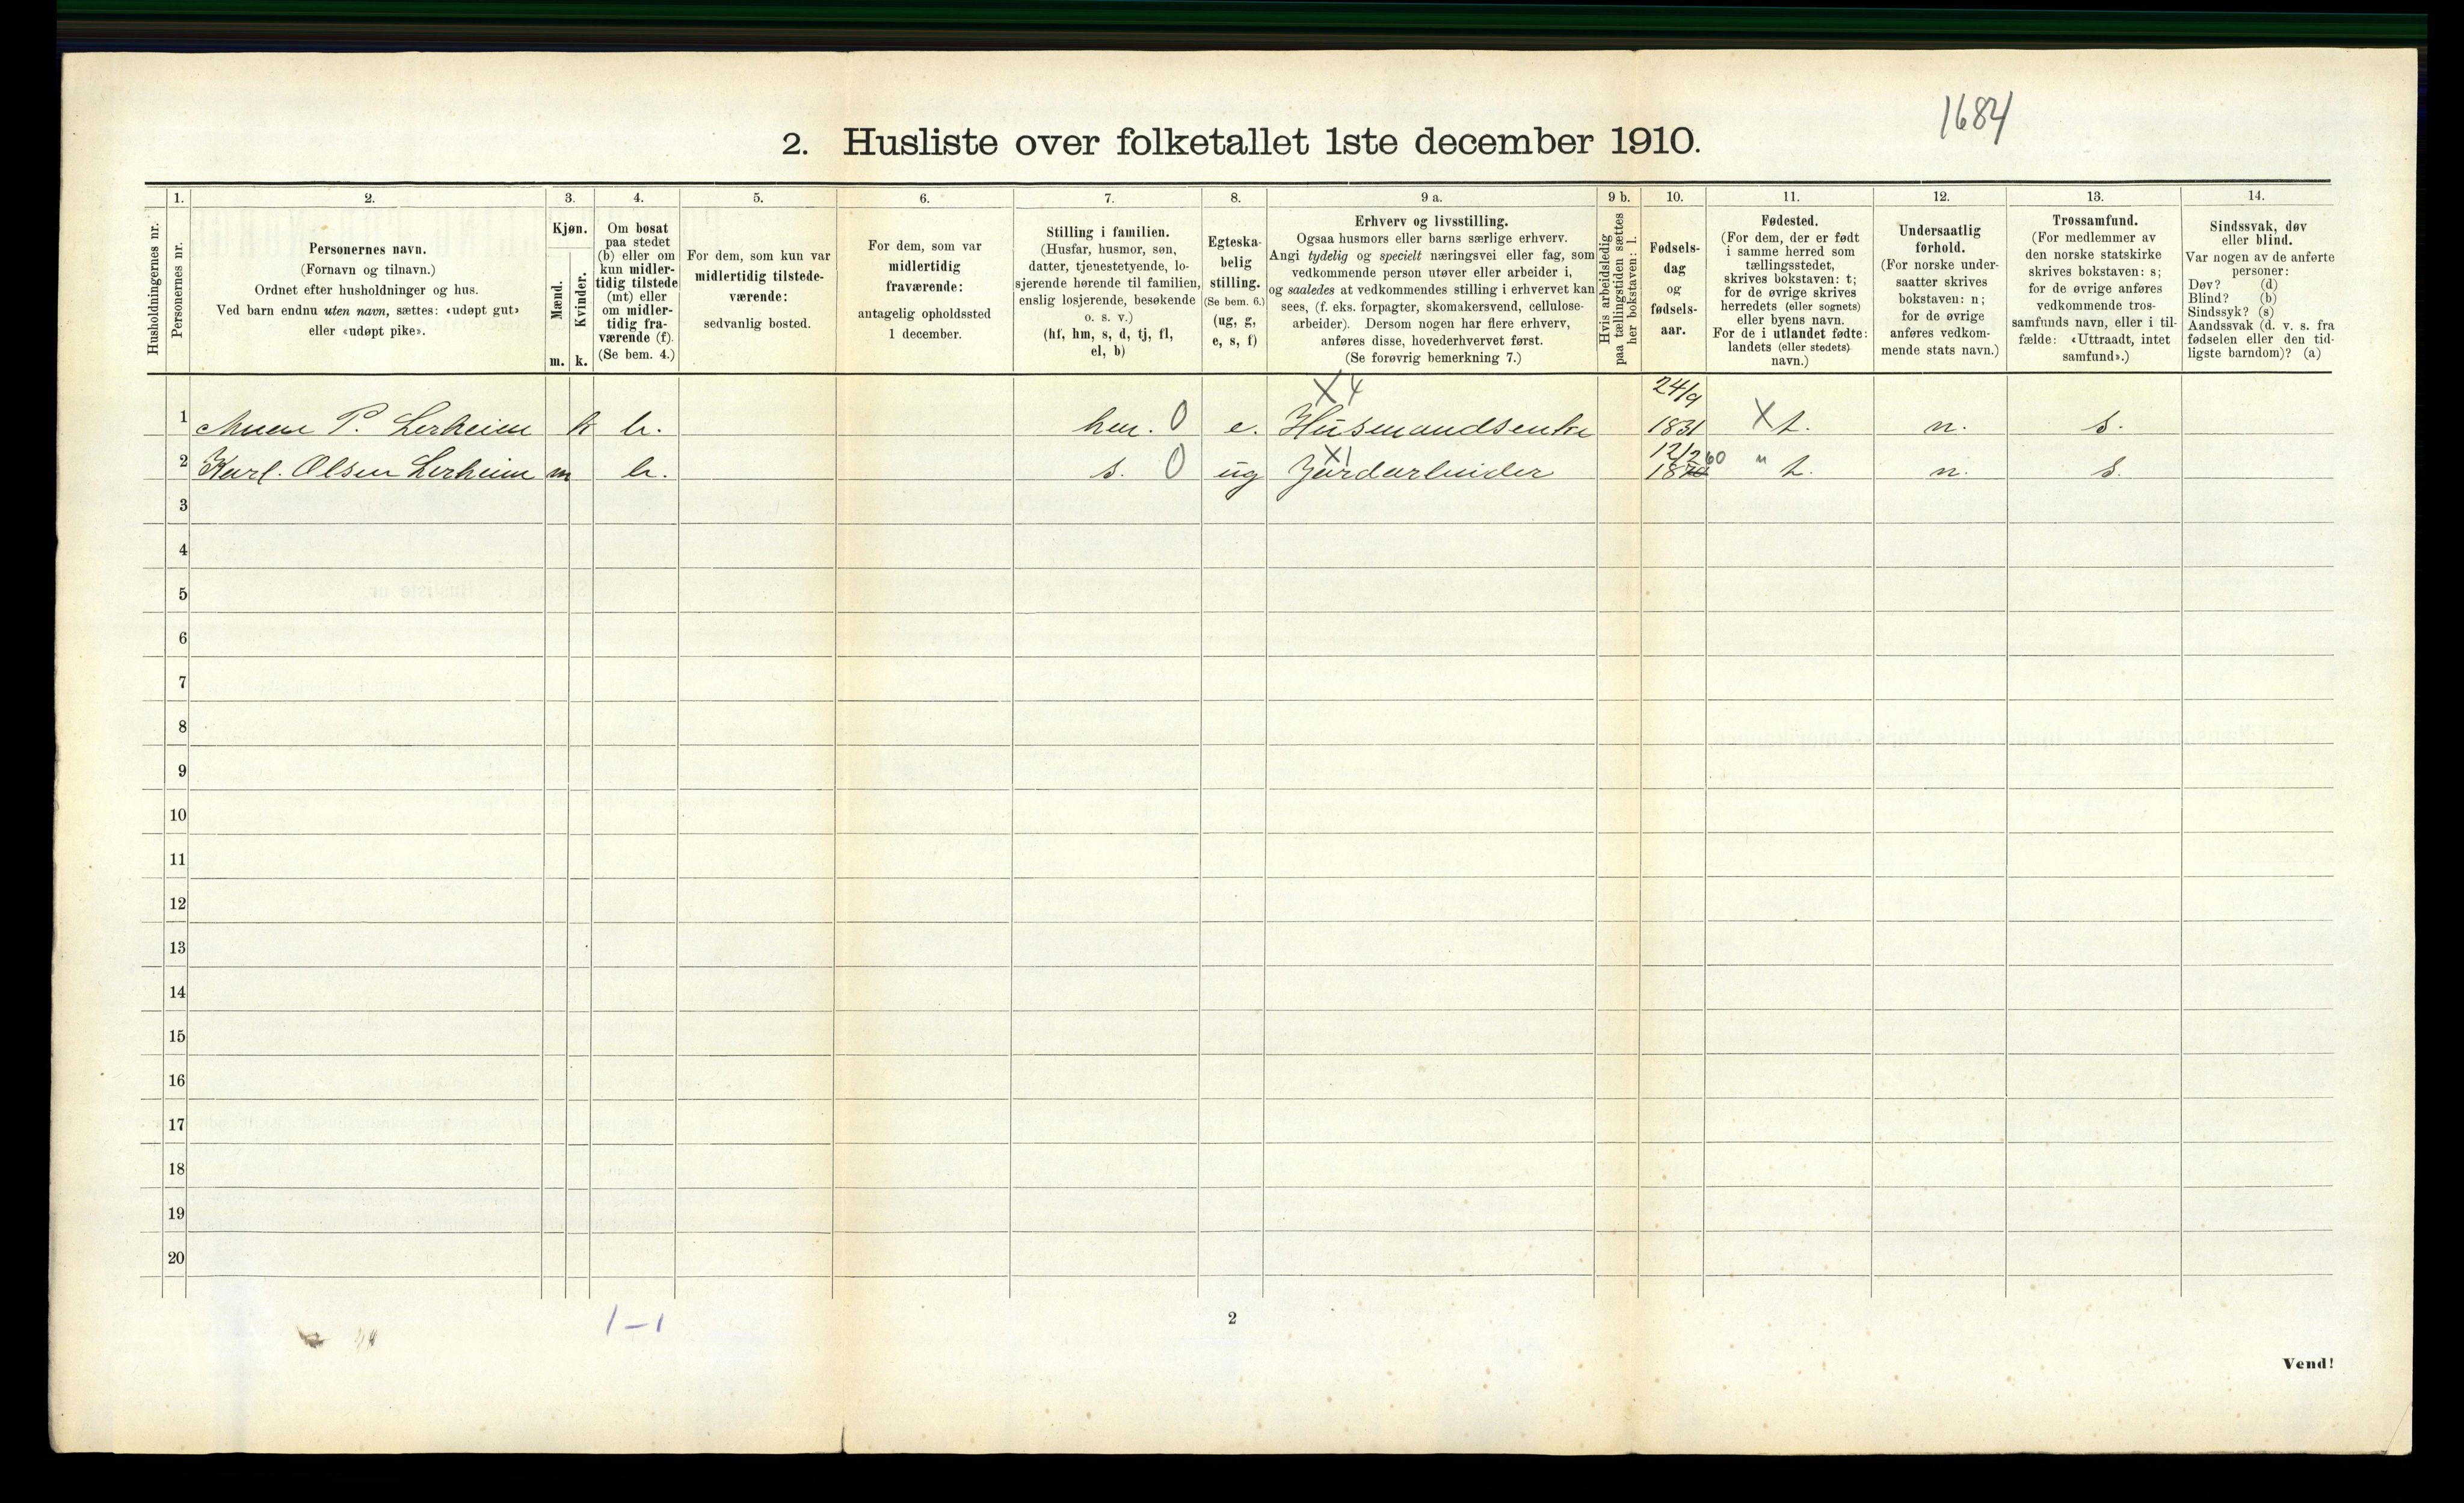 1684
2. Husliste over folketallet 1ste december 1910.
1. 2. 3. 4. 5. 6. 7. 8. 9 a. 9 b. 10. 11. 12. 13. 14.
Husholdningernes nr.
Personernes nr.
Personernes navn.
(Fornavn og tilnavn.)
Ordnet efter husholdninger og hus.
Ved barn endnu uten navn, sættes: «udøpt gut»
eller «udøpt pike».
Kjøn.
Mænd.
Kvinder.
m. k.
Om bosat
paa stedet
(b) eller om
kun midler-
tidig tilstede
(mt) eller
om midler-
tidig fra-
værende (f).
(Se bem. 4.)
For dem, som kun var
midlertidig tilstede-
værende:
sedvanlig bosted.
For dem, som var
midlertidig
fraværende:
antagelig opholdssted
1 december.
Stilling i familien.
(Husfar, husmor, søn,
datter, tjenestetyende, lo-
sjerende hørende til familien,
enslig losjerende, besøkende
o. s. v.)
(hf, hm, s, d, tj, fl,
el, b)
Egteska-
belig
stilling.
(Se bem. 6.)
(ug, g,
e, s, f)
Erhverv og livsstilling.
Ogsaa husmors eller barns særlige erhverv.
Angi tydelig og specielt næringsvei eller fag, som
vedkommende person utøver eller arbeider i,
og saaledes at vedkommendes stilling i erhvervet kan
sees, (f. eks. forpagter, skomakersvend, cellulose-
arbeider). Dersom nogen har flere erhverv,
anføres disse, hovederhvervet først.
(Se forøvrig bemerkning 7.)
Hvis arbeidsledig
paa tællingstiden sættes
her bokstaven: l.
Fødsels-
dag
og
fødsels-
aar.
Fødested.
(For dem, der er født
i samme herred som
tællingsstedet,
skrives bokstaven: t;
for de øvrige skrives
herredets (eller sognets)
eller byens navn.
For de i utlandet fødte:
landets (eller stedets)
navn.)
Undersaatlig
forhold.
(For norske under-
saatter skrives
bokstaven: n;
for de øvrige
anføres vedkom-
mende stats navn.)
Trossamfund.
(For medlemmer av
den norske statskirke
skrives bokstaven: s;
for de øvrige anføres
vedkommende tros-
samfunds navn, eller i til-
fælde: «Uttraadt, intet
samfund».)
Sindssvak, døv
eller blind.
Var nogen av de anførte
personer:
Døv? (d)
Blind? (b)
Sindssyk? (s)
Aandssvak (d. v. s. fra
fødselen eller den tid-
ligste barndom)? (a)
X 4 24/9
1 P. Lerheim k b. hm. 0 e. Husmandsenke 1831 X t. n. s.
X1 12/2 60
2 Karl. Olsen Lerheim m b. s. 0 ug Jordarbeider 1870 " t. n. s.
3
4
5
6
7
8
9
10
11
12
13
14
15
16
17
18
19
20
1 – 1
2
Vend!